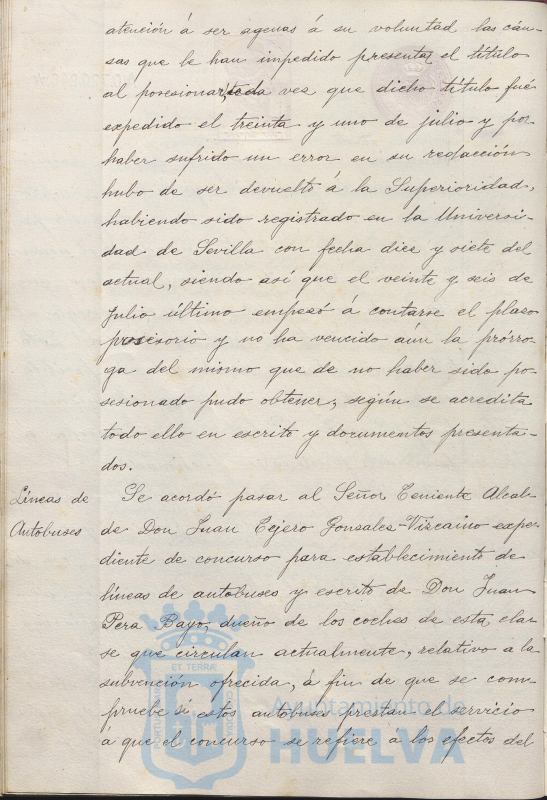 atención á ser agenas á su voluntad las cáu-
sas que le han impedido presentar el título
al posesionar, toda vez que dicho título fué
expedido el treinta y uno de julio y por
haber sufrido un error en su redacción
hubo de ser devuelto á la Superioridad,
habiendo sido registrado en la Universi-
dad de Sevilla con fecha diez y siete del
actual, siendo así que el veinte y seis de
Julio último empezó á contarse el plazo
posesorio y no ha vencido aún la prórro-
ga del mismo que de no haber sido po-
sesionado pudo obtener, según se acredita
todo ello en escrito y documentos presenta-
dos.
Líneas de
Autobuses
Se acordó pasar al Señor Teniente Alcal-
de Don Juan Tejero Gonzales-Vizcaino expe-
diente de concurso para establecimiento de
líneas de autobuses y escrito de Don Juan
Pera Bayo, dueño de los coches de esta cla-
se que circulan actualmente, relativo a la
subvención ofrecida, á fin de que se com-
pruebe si estos autobuses prestan el servicio
á que el concurso se refiere a los efectos del
ET TERRÆ
Ayuntamiento de
HUELVA